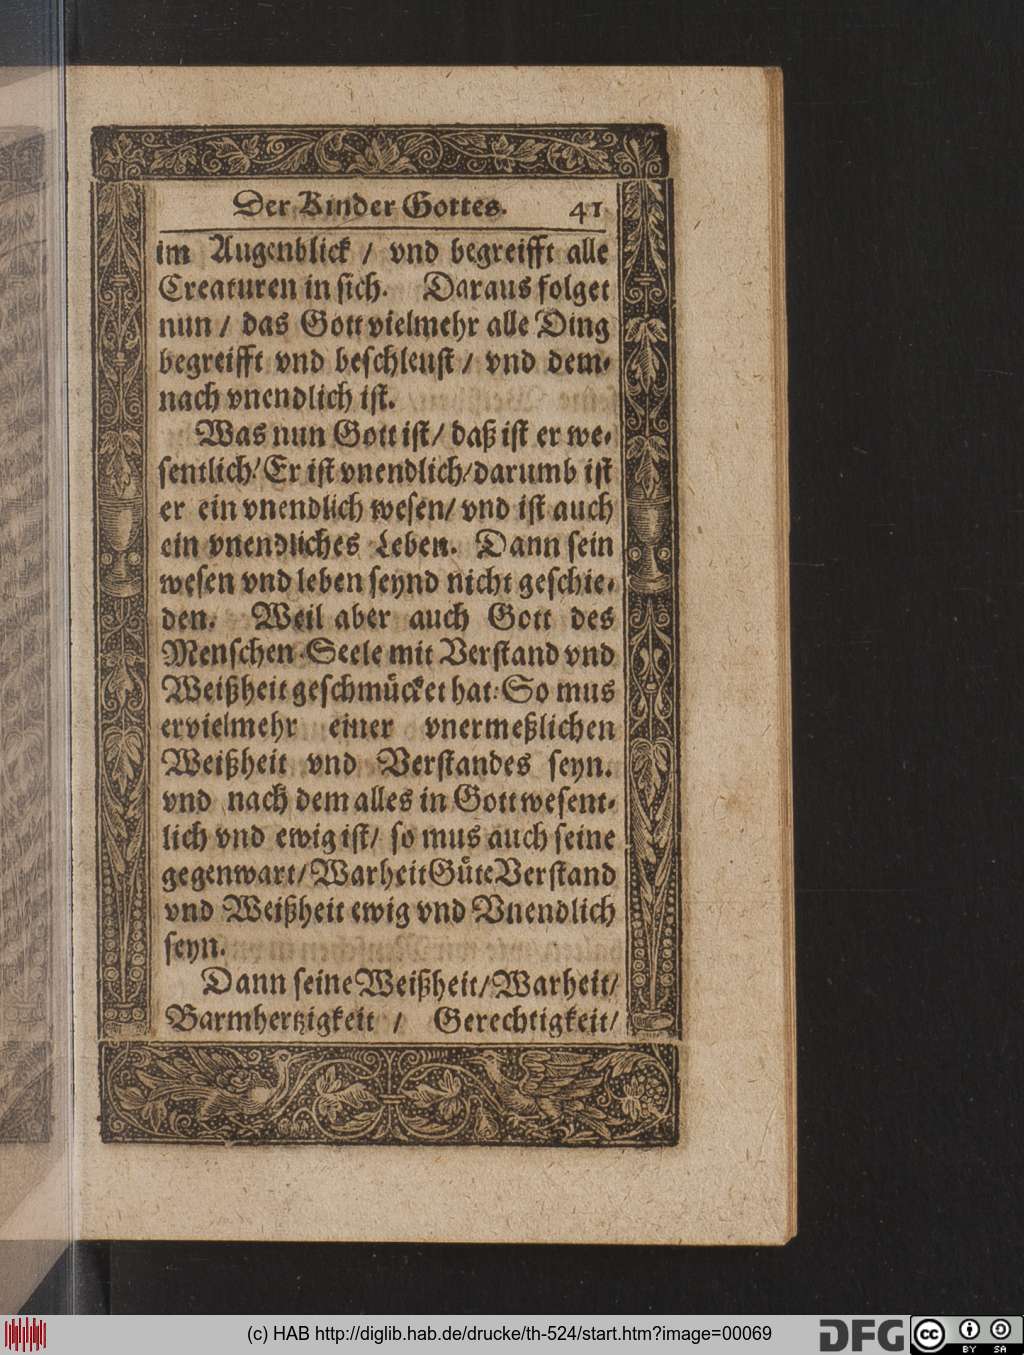 Der Kinder Gottes. 41
im Augenblick / vnd begreifft alle
Creaturen in sich. Daraus folget
nun / das Gott vielmehr alle Ding
begreifft vnd beschleust / vnd dem-
nach vnendlich ist.
Was nun Gott ist / daß ist er we-
sentlich / Er ist vnendlich / darumb ist
er ein vnendlich wesen / vnd ist auch
ein vnendliches Leben. Dann sein
wesen vnd leben seynd nicht geschie-
den. Weil aber auch Gott des
Menschen Seele mit Verstand vnd
Weißheit geschmücket hat: So mus
er vielmehr einer vnermeßlichen
Weißheit vnd Verstandes seyn.
vnd nach dem alles in Gott wesent-
lich vnd ewig ist / so mus auch seine
gegenwart / Warheit Güte Verstand
vnd Weißheit ewig vnd Vnendlich
seyn.
Dann seine Weißheit / Warheit /
Barmhertzigkeit / Gerechtigkeit /
(c) HAB http://diglib.hab.de/drucke/th-524/start.htm?image=00069
DFG cc BY SA